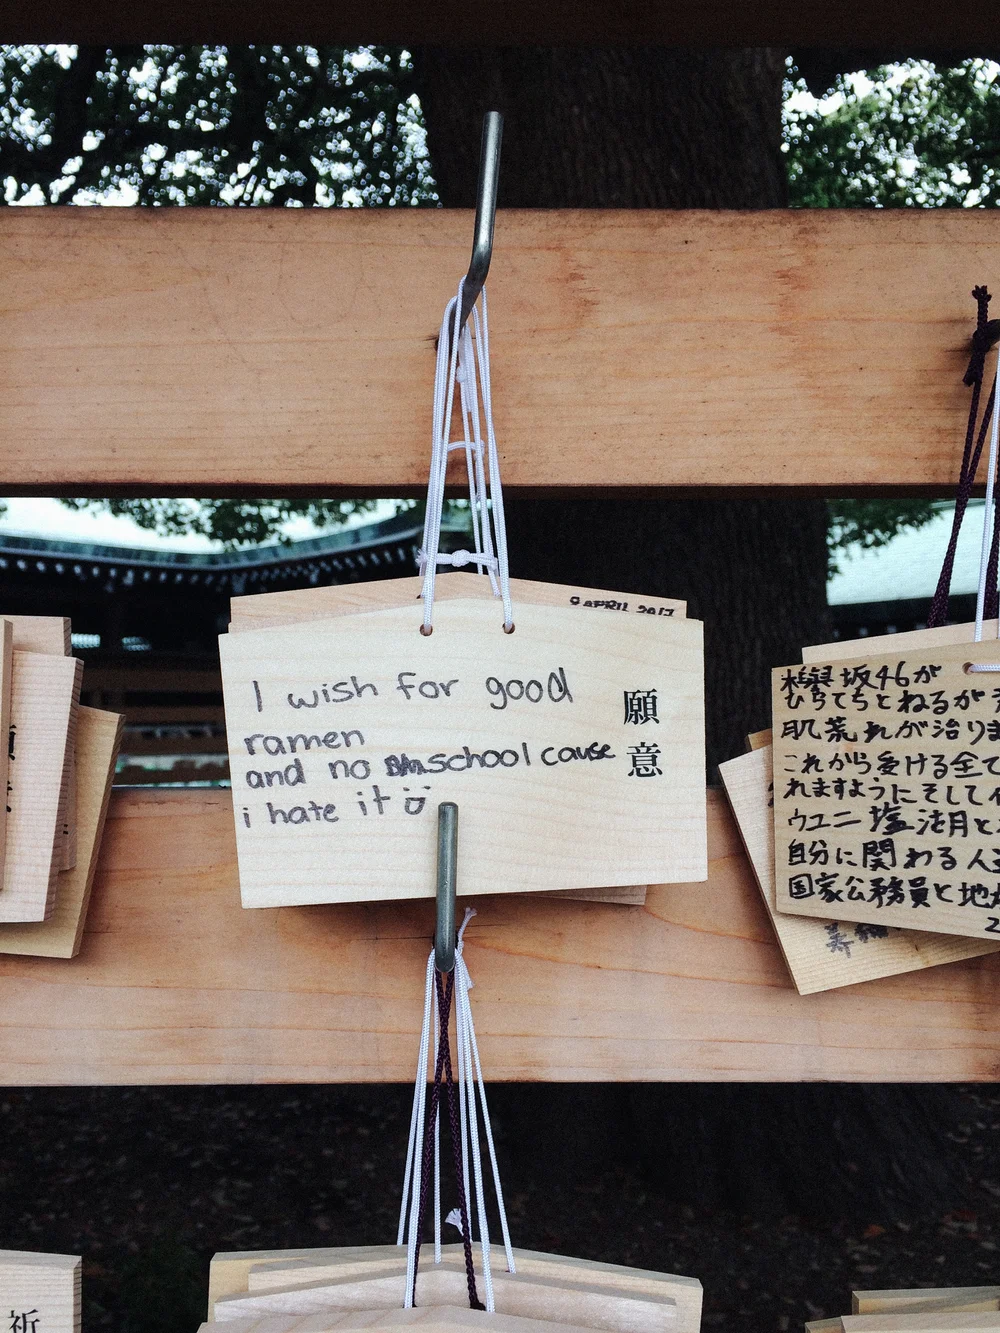 9 APRIL 2017
I wish for good
ramen
and no school cause
i hate it
願
意
欅坂46が
ひらてちとねるが
肌荒れが治りま
これから受ける全て
れますようにそして
ウユニ塩湖と
自分に関わる人
国家公務員と地
2
祈